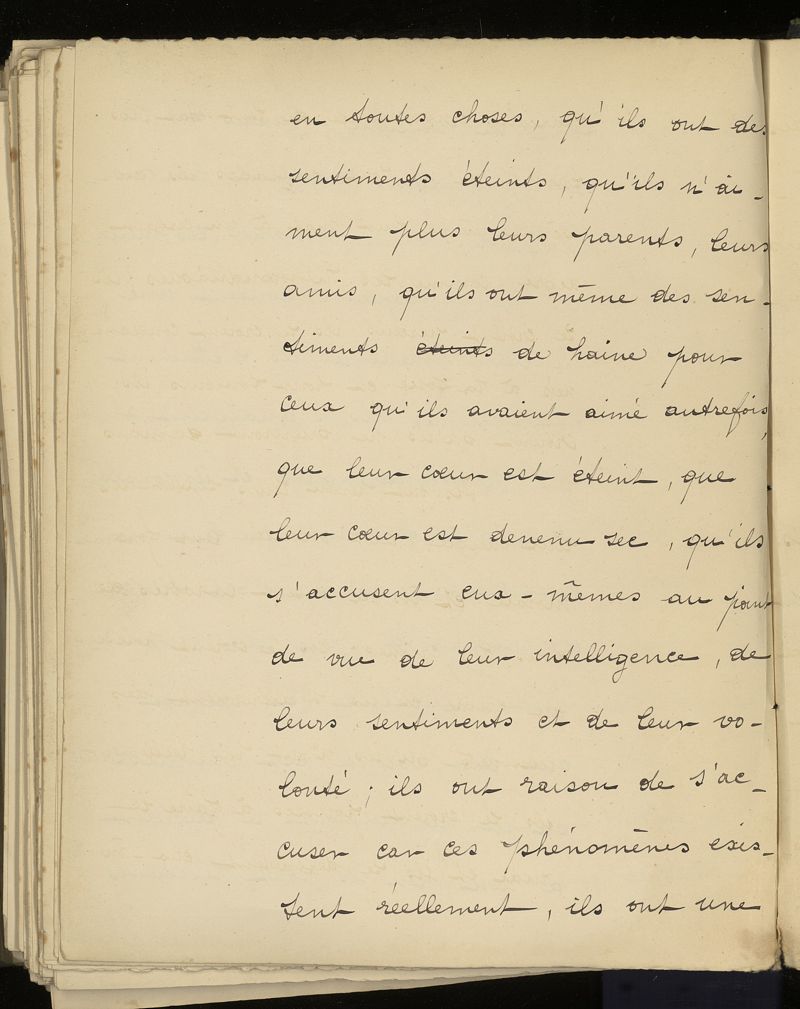 en toutes choses, qu'ils ont des
sentiments éteints, qu'ils n'ai-
ment plus leurs parents, leurs
amis, qu'ils ont même des sen-
timents éteints de haine pour
ceux qu'ils avaient aimé autrefois,
que leur cœur est éteint, que
leur cœur est devenu sec, qu'ils
s'accusent eux-mêmes au point
de vue de leur intelligence, de
leurs sentiments et de leur vo-
lonté; ils ont raison de s'ac-
cuser car ces phénomènes exis-
tent réellement, ils ont une